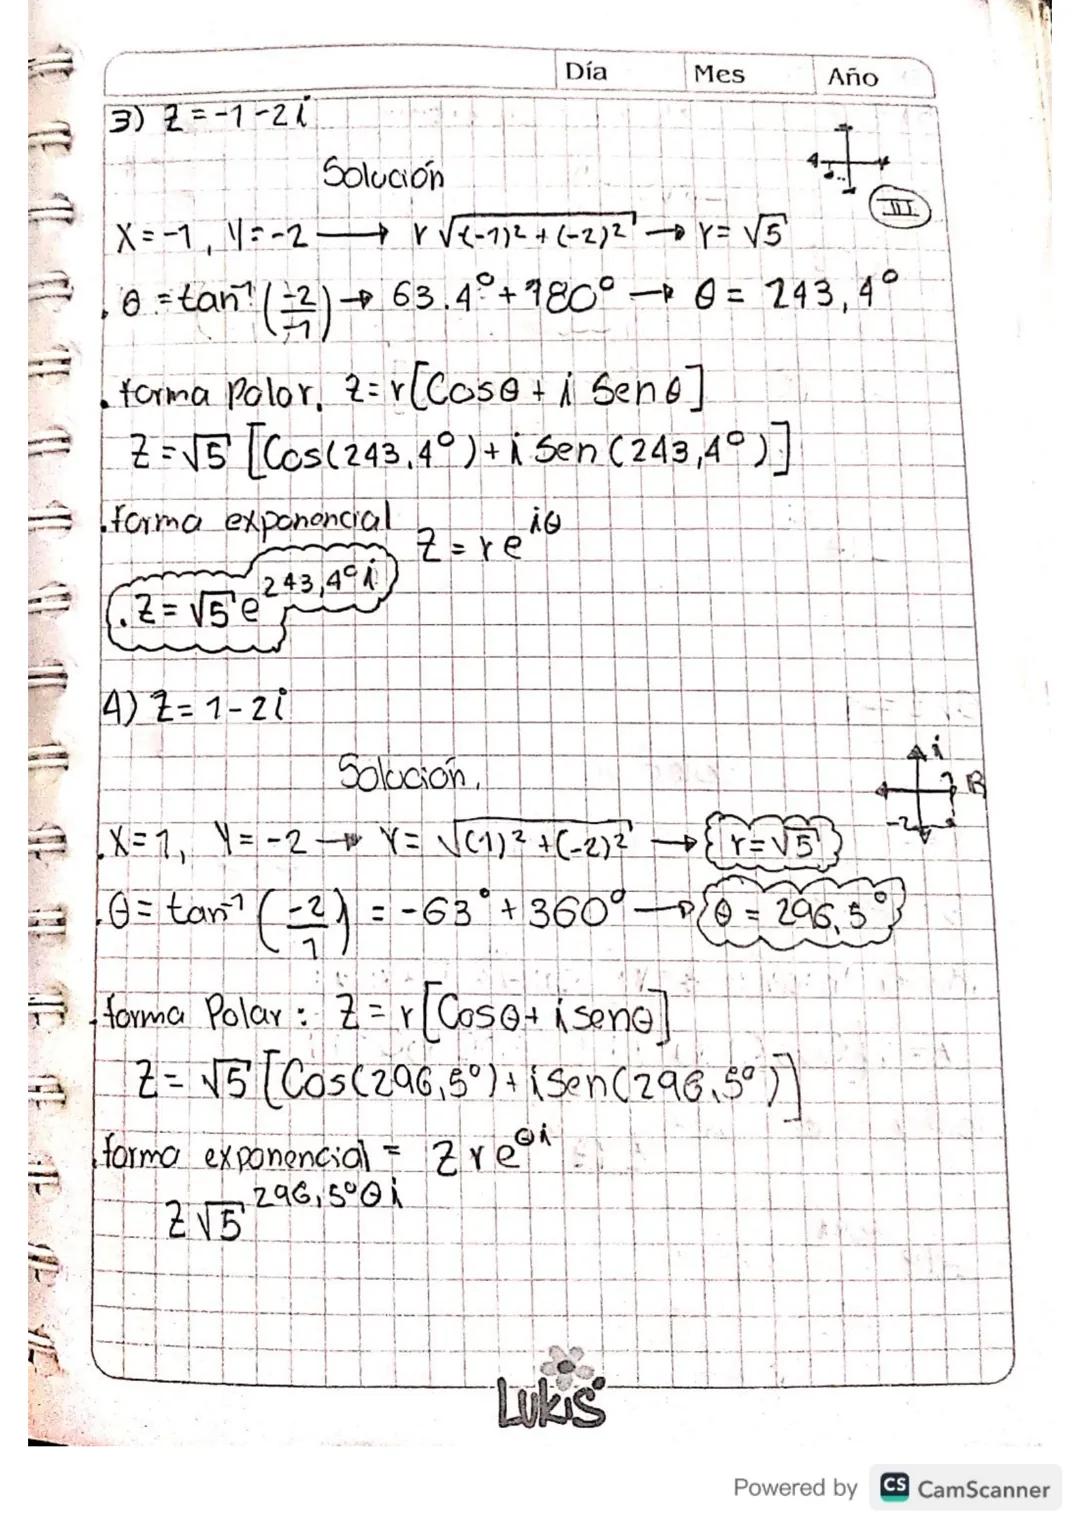 Día Mes Año
3) Z = -1 - 2i
Solución
III
X = -1, Y = -2 → r √(-1)² + (-2)² → r = √5
θ = tan⁻¹ (-2/-1) → 63.4° + 180° → θ = 243,4°
. forma Polar. Z = r[Cosθ + i Senθ]
Z = √5 [Cos(243,4°) + i Sen(243,4°)]
. forma exponencial Z = re^iθ
. Z = √5 e^243,4° i
4) Z = 1 - 2i
Solución.
i
1 R
-2
. X = 1, Y = -2 → r = √(1)² + (-2)² → r = √5
. θ = tan⁻¹ (-2/1) = -63° + 360° → θ = 296,5°
. forma Polar : Z = r[Cosθ + i senθ]
Z = √5 [Cos(296,5°) + i Sen(296,5°)]
. forma exponencial = Z r e^θi
Z √5 ^296,5°θi
LUKIS
Powered by CS CamScanner